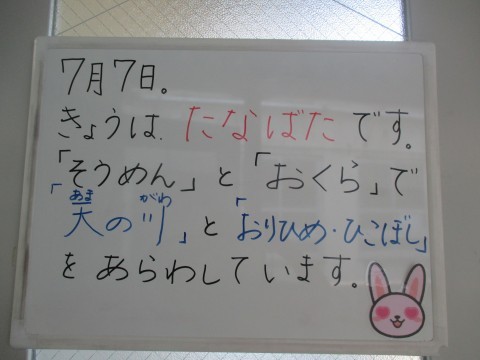 7月7日。
きょうは、たなばたです。
「そうめん」と「おくら」で
あま がわ
「天の川」と「おりひめ・ひこぼし」
をあらわしています。